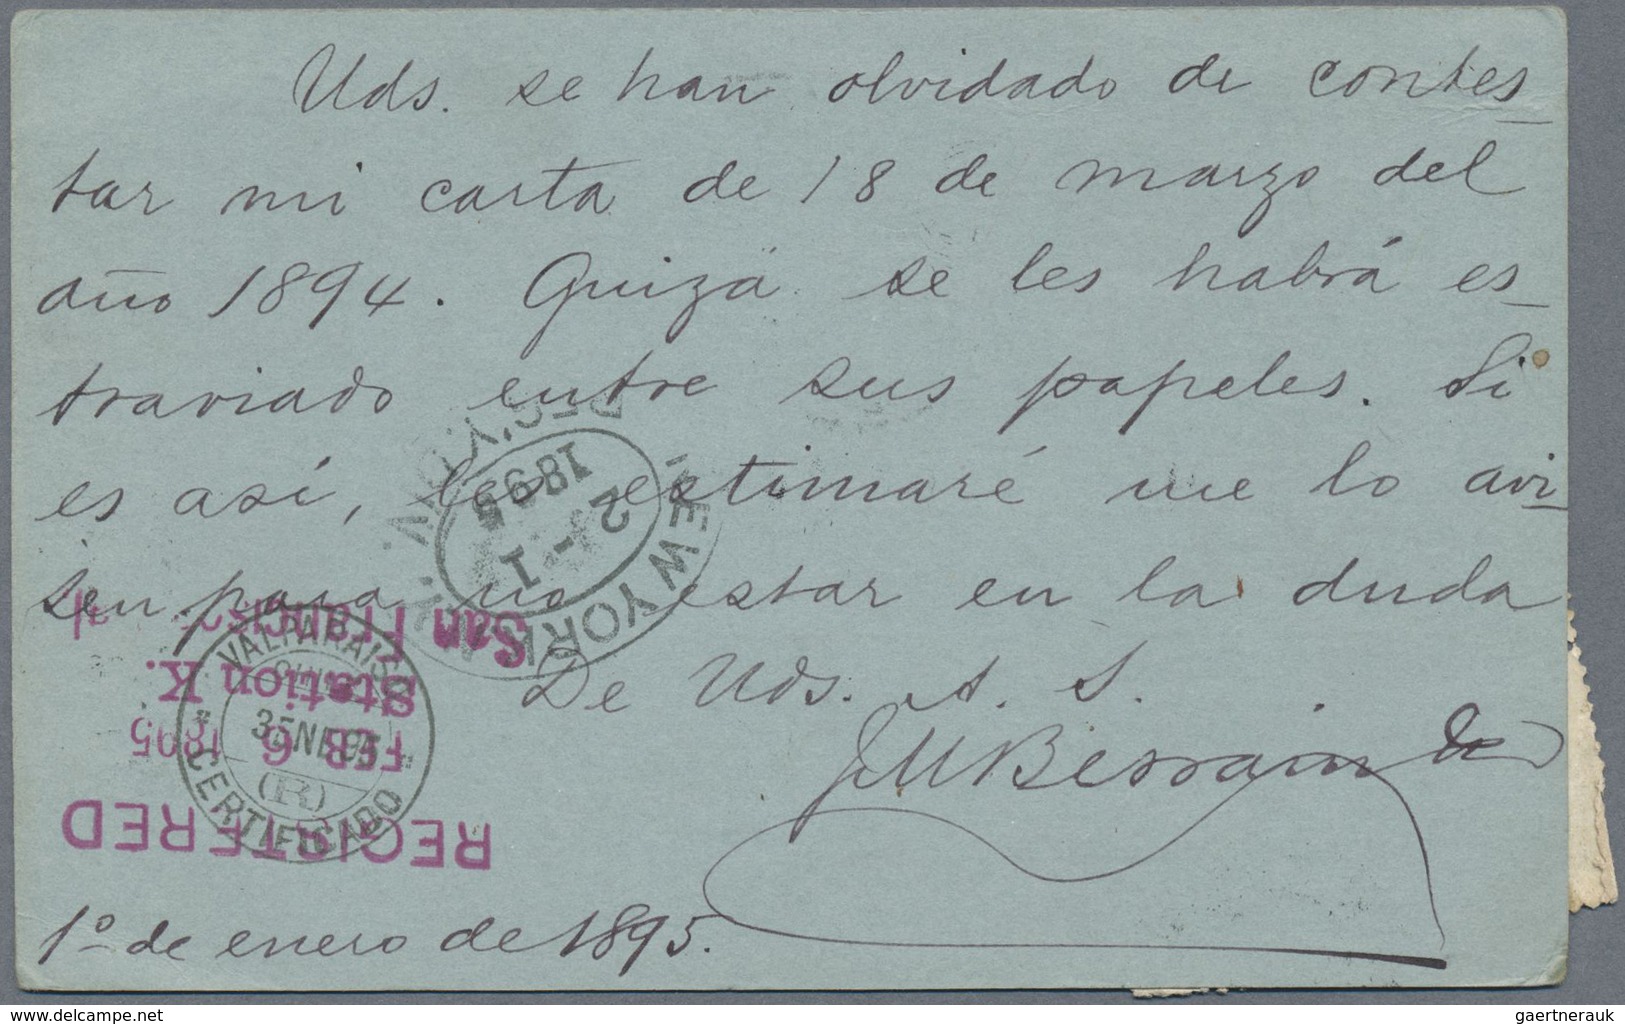 Uds. se han olvidado de contes
tar mi carta de 18 de marzo del
año 1894. Quizá se les habrá es
traviado entre sus papeles. Si
es así, les estimaré me lo avi
sen para no estar en la duda
De Uds. A. S.
1º de enero de 1895.
NEW YORK
2 - 1
1895
San Francisco
Station K.
FEB 6 1895
REGISTERED
VALPARAISO
(R)
CERTIFICADO
delcampe.net
gaertnerauk